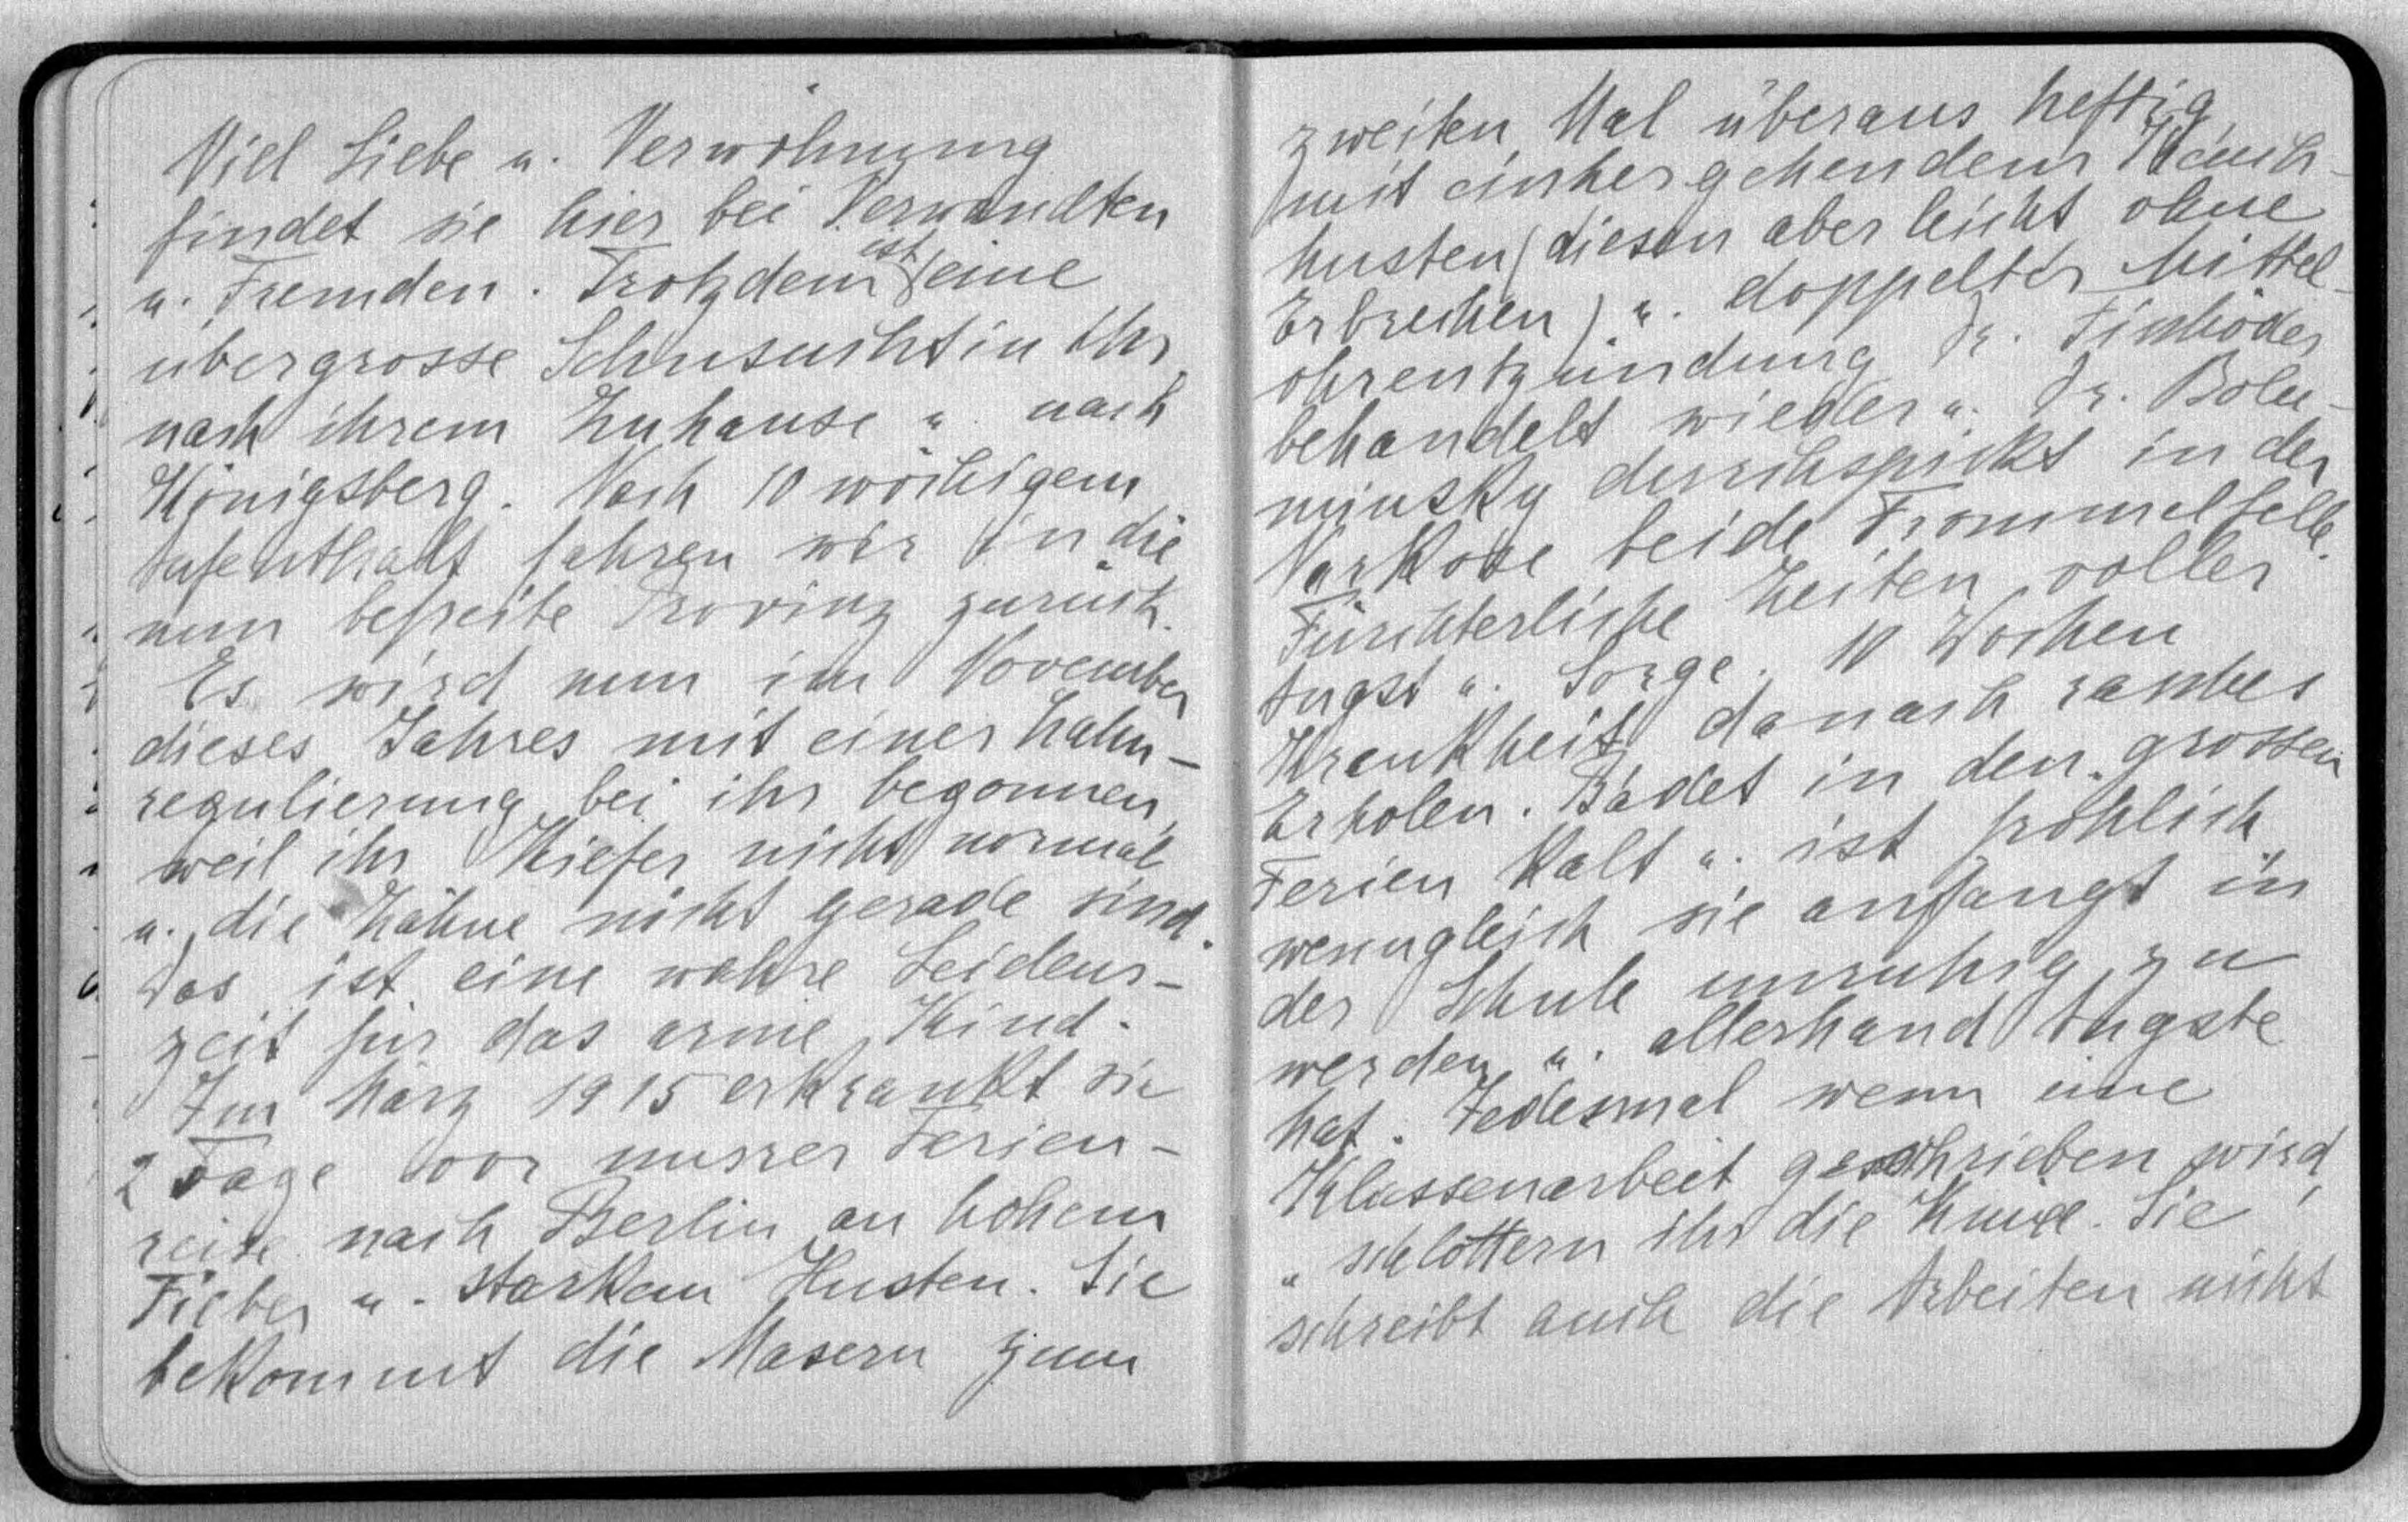 Viel Liebe u. Verwöhnung
findet sie hier bei Verwandten
u. Fremden. Trotzdem ist eine
übergrosse Sehnsucht in ihr
nach ihrem Zuhause u. nach
Königsberg. Nach 10 wöchigem
Aufenthalt fahren wir in die
nun befreite Provinz zurück.
Es wird nun im November
dieses Jahres mit einer Zahn-
regulierung bei ihr begonnen,
weil ihr Kiefer nicht normal
u. die Zähne nicht gerade sind.
Das ist eine wahre Leidens-
zeit für das arme Kind.
Im März 1915 erkrankt sie
2 Tage vor unsrer Ferien-
reise nach Berlin an hohem
Fieber u. starkem Husten. Sie
bekommt die Masern zum
zweiten Mal überaus heftig
mit einhergehendem Keuch-
husten (diesen aber leicht ohne
Erbrechen) u. doppelter Mittel-
ohrentzündung Dr.
behandelt wieder u. Dr.
durchspickt in der
Narkose beide Trommelfelle.
Fürchterliche Zeiten voller
Angst u. Sorge. 10 Wochen
Krankheit, danach rasches
Erholen. Badet in den grossen
Ferien kalt u. ist fröhlich,
wenngleich sie anfängt in
der Schule unruhig zu
werden u. allerhand Ängste
hat. Jedesmal wenn eine
Klassenarbeit geschrieben wird,
schlottern ihr die Kniee. Sie
schreibt auch die Arbeiten nicht